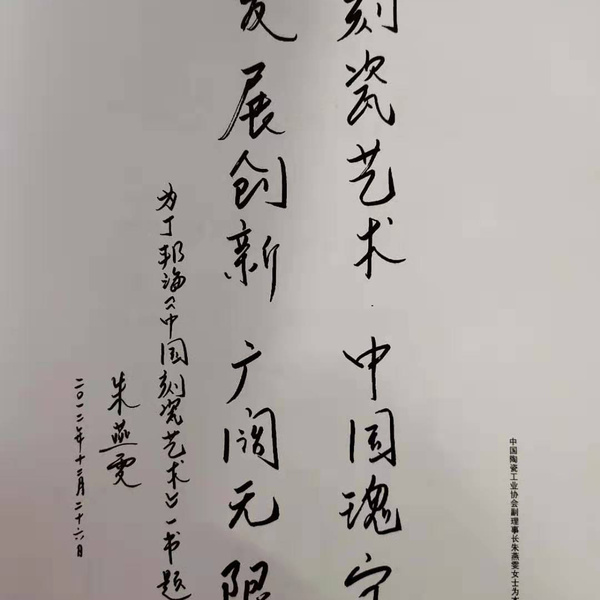 刻瓷艺术 中国瑰宝
发展创新 广阔无限
为丁邦海《中国刻瓷艺术》一书题
朱燕雯
二〇一二年十二月二十六日
中国陶瓷工业协会副理事长朱燕雯女士为本